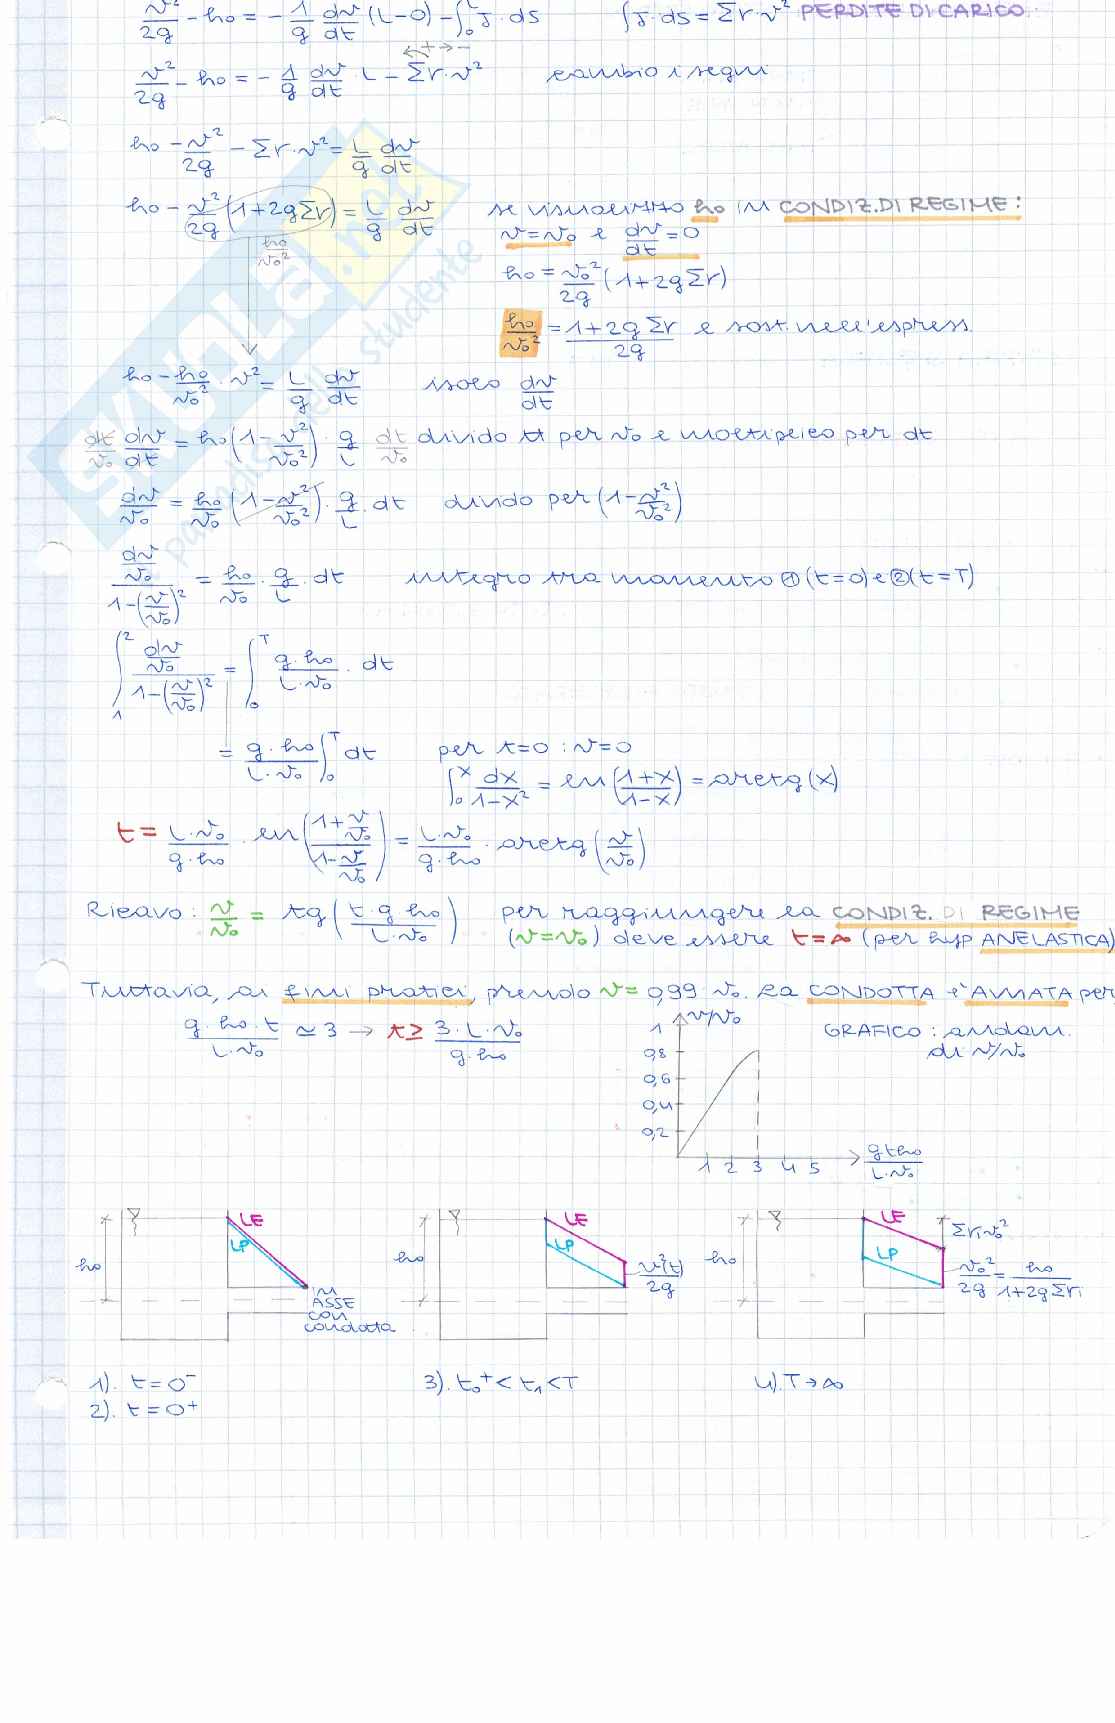 v²/2g - ho = - 1/g dv/dt (L-0) - ∫₀ᴸ J · ds ∫J·ds = Σr·v² PERDITE DI CARICO
← + → -
v²/2g - ho = - 1/g dv/dt · L - Σr·v² cambio i segni
ho - v²/2g - Σr·v² = L/g dv/dt
ho - v²/2g (1+2gΣr) = L/g dv/dt se visualizzo ho in CONDIZ. DI REGIME:
ho/vo² v=vo e dv/dt=0
ho = vo²/2g (1+2gΣr)
ho/vo² = 1+2gΣr/2g e sost. nell'espress.
ho - ho/vo² · v² = L/g dv/dt isolo dv/dt
dt/vo dv/dt = ho(1-v²/vo²) · g/L dt/vo divido tt per vo e moltiplico per dt
dv/vo = ho/vo (1-v²/vo²) · g/L · dt divido per (1-v²/vo²)
dv/vo / 1-(v/vo)² = ho/vo · g/L · dt integro tra momento ① (t=0) e ② (t=T)
∫₁² dv/vo / 1-(v/vo)² = ∫₀ᵀ g·ho/L·vo · dt
= g·ho/L·vo ∫₀ᵀ dt per t=0 : v=0
∫₀ˣ dx/1-x² = ln(1+x/1-x) = arctg(x)
t = L·vo/g·ho · ln(1+v/vo / 1-v/vo) = L·vo/g·ho · arctg(v/vo)
Ricavo: v/vo = tg(t·g ho/L·vo) per raggiungere la CONDIZ. DI REGIME
(v=vo) deve essere t=∞ (per hyp ANELASTICA)
Tuttavia, ai fini pratici, prendo v= 0,99 vo. La CONDOTTA è AVVIATA per
g·ho·t/L·vo ≃ 3 → t ≥ 3·L·vo/g·ho
v/vo
GRAFICO: andam.
di v/vo
1
0,8
0,6
0,4
0,2
1 2 3 4 5
g t ho/L·vo
LE
LP
ho
IN
ASSE
CON
condotta
LE
LP
ho
v²(t)/2g
LE
LP
ho
Σri vo²
vo²/2g = ho/1+2gΣri
1). t=0⁻
2). t=0⁺
3). to⁺ < t₁ < T
4). T→∞
SKUOLA.net
paradiso dello studente